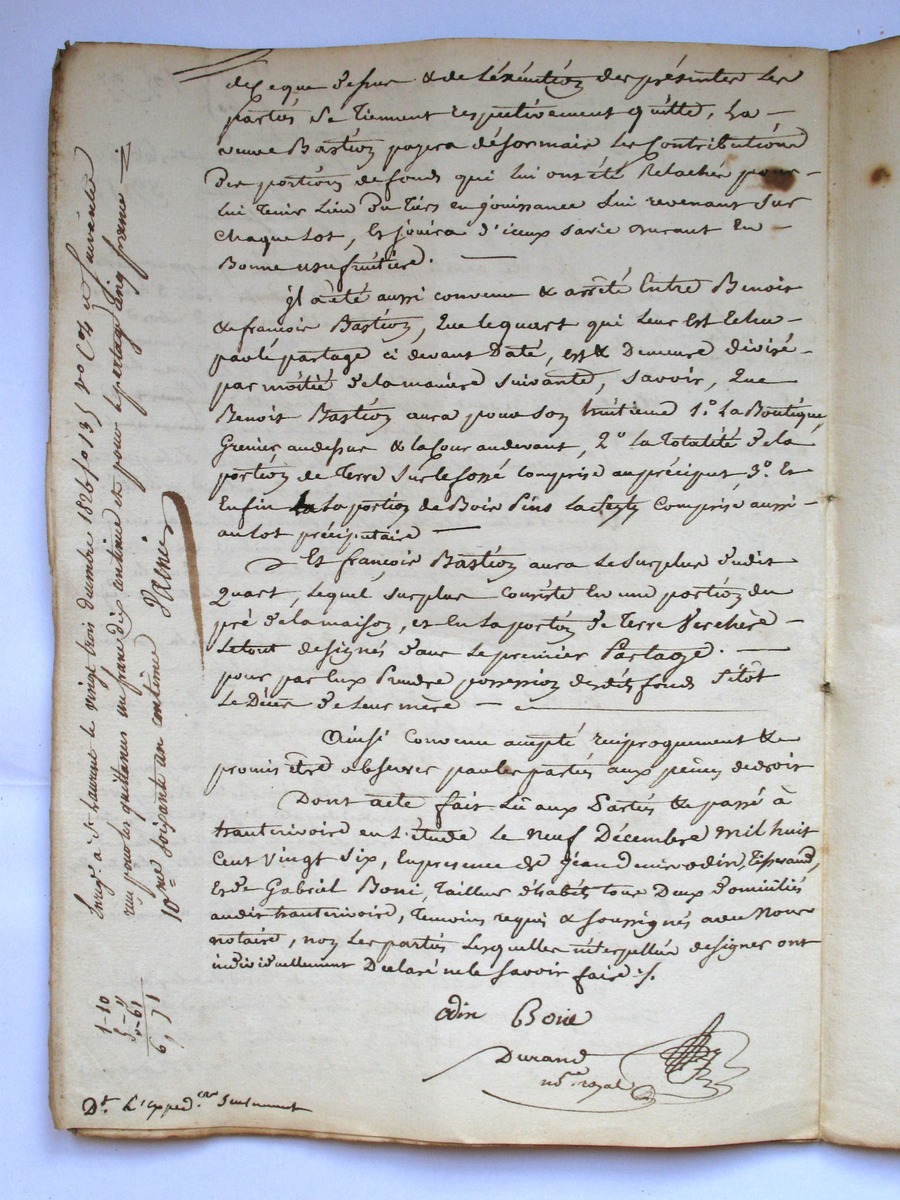 de ce que dessus & de L'éxécution des présentes Les
parties Se Tiennent respectivement Quitte, La
veuve Bastion payera désormais Les Contributions
Des portions de fonds qui Lui ont été Relachés pour
Lui Tenir Lieu Du Tiers en Jouissance Lui revenant Sur
Chaque Lot, Et jouira d'iceux sa vie Durant En
Bonne usufruitière.
Il a été aussi convenu & arrêté Entre Benoit
& françois Bastion, Que le quart qui Leur Est Echu
par le partage ci devant Daté, est & Demeure divisé
par moitié de la manière Suivante, Savoir, Que
Benoit Bastion aura pour Son huitième 1.° La Boutique,
Grenier au dessus & la Cour au devant, 2.° La Totalité de la
portion de Terre Sur le fossé comprise au préciput 3.° Et
Enfin La portion de Bois Pins comprise aussi
au Lot préciputaire
Et françois Bastion aura Le Surplus dudit
Quart, Lequel Surplus Consiste En une portion du
pré de la maison, et En La portion de Terre Verchère
Le tout designés dans Le premier Partage.
pour par Eux Prendre possession desdits fonds Sitôt
Le Décès de Leur mère
Ainsi Convenu accepté réciproquement &
promis être observer par les parties aux peines de droit
Dont acte fait Lu aux Parties & passé à
hauterivoire en L'étude Le Neuf Décembre mil huit
Cent Vingt Six, En presence de Jean Denis odin, Tisserand,
Et de Gabriel Boni, Tailleur d'habits tous Deux Domiciliés
audit hauterivoire, Temoins requis & Soussignés avec Nous
notaire, non Les parties Lesquelles interpellées de signer ont
individuellement Déclaré ne le Savoir faire ./.
odin Bonie
Durand
n.re royal
Enrg.é à S.t Laurent le vingt trois decembre 1826 f.o 135 v.o C. 4 et suivantes
reçu pour les quittances un franc dix centimes et pour le partage cinq francs
10.me soixante un centimes
1-10
5-"
0-61
6,71
D.t L'exped.on Seulement